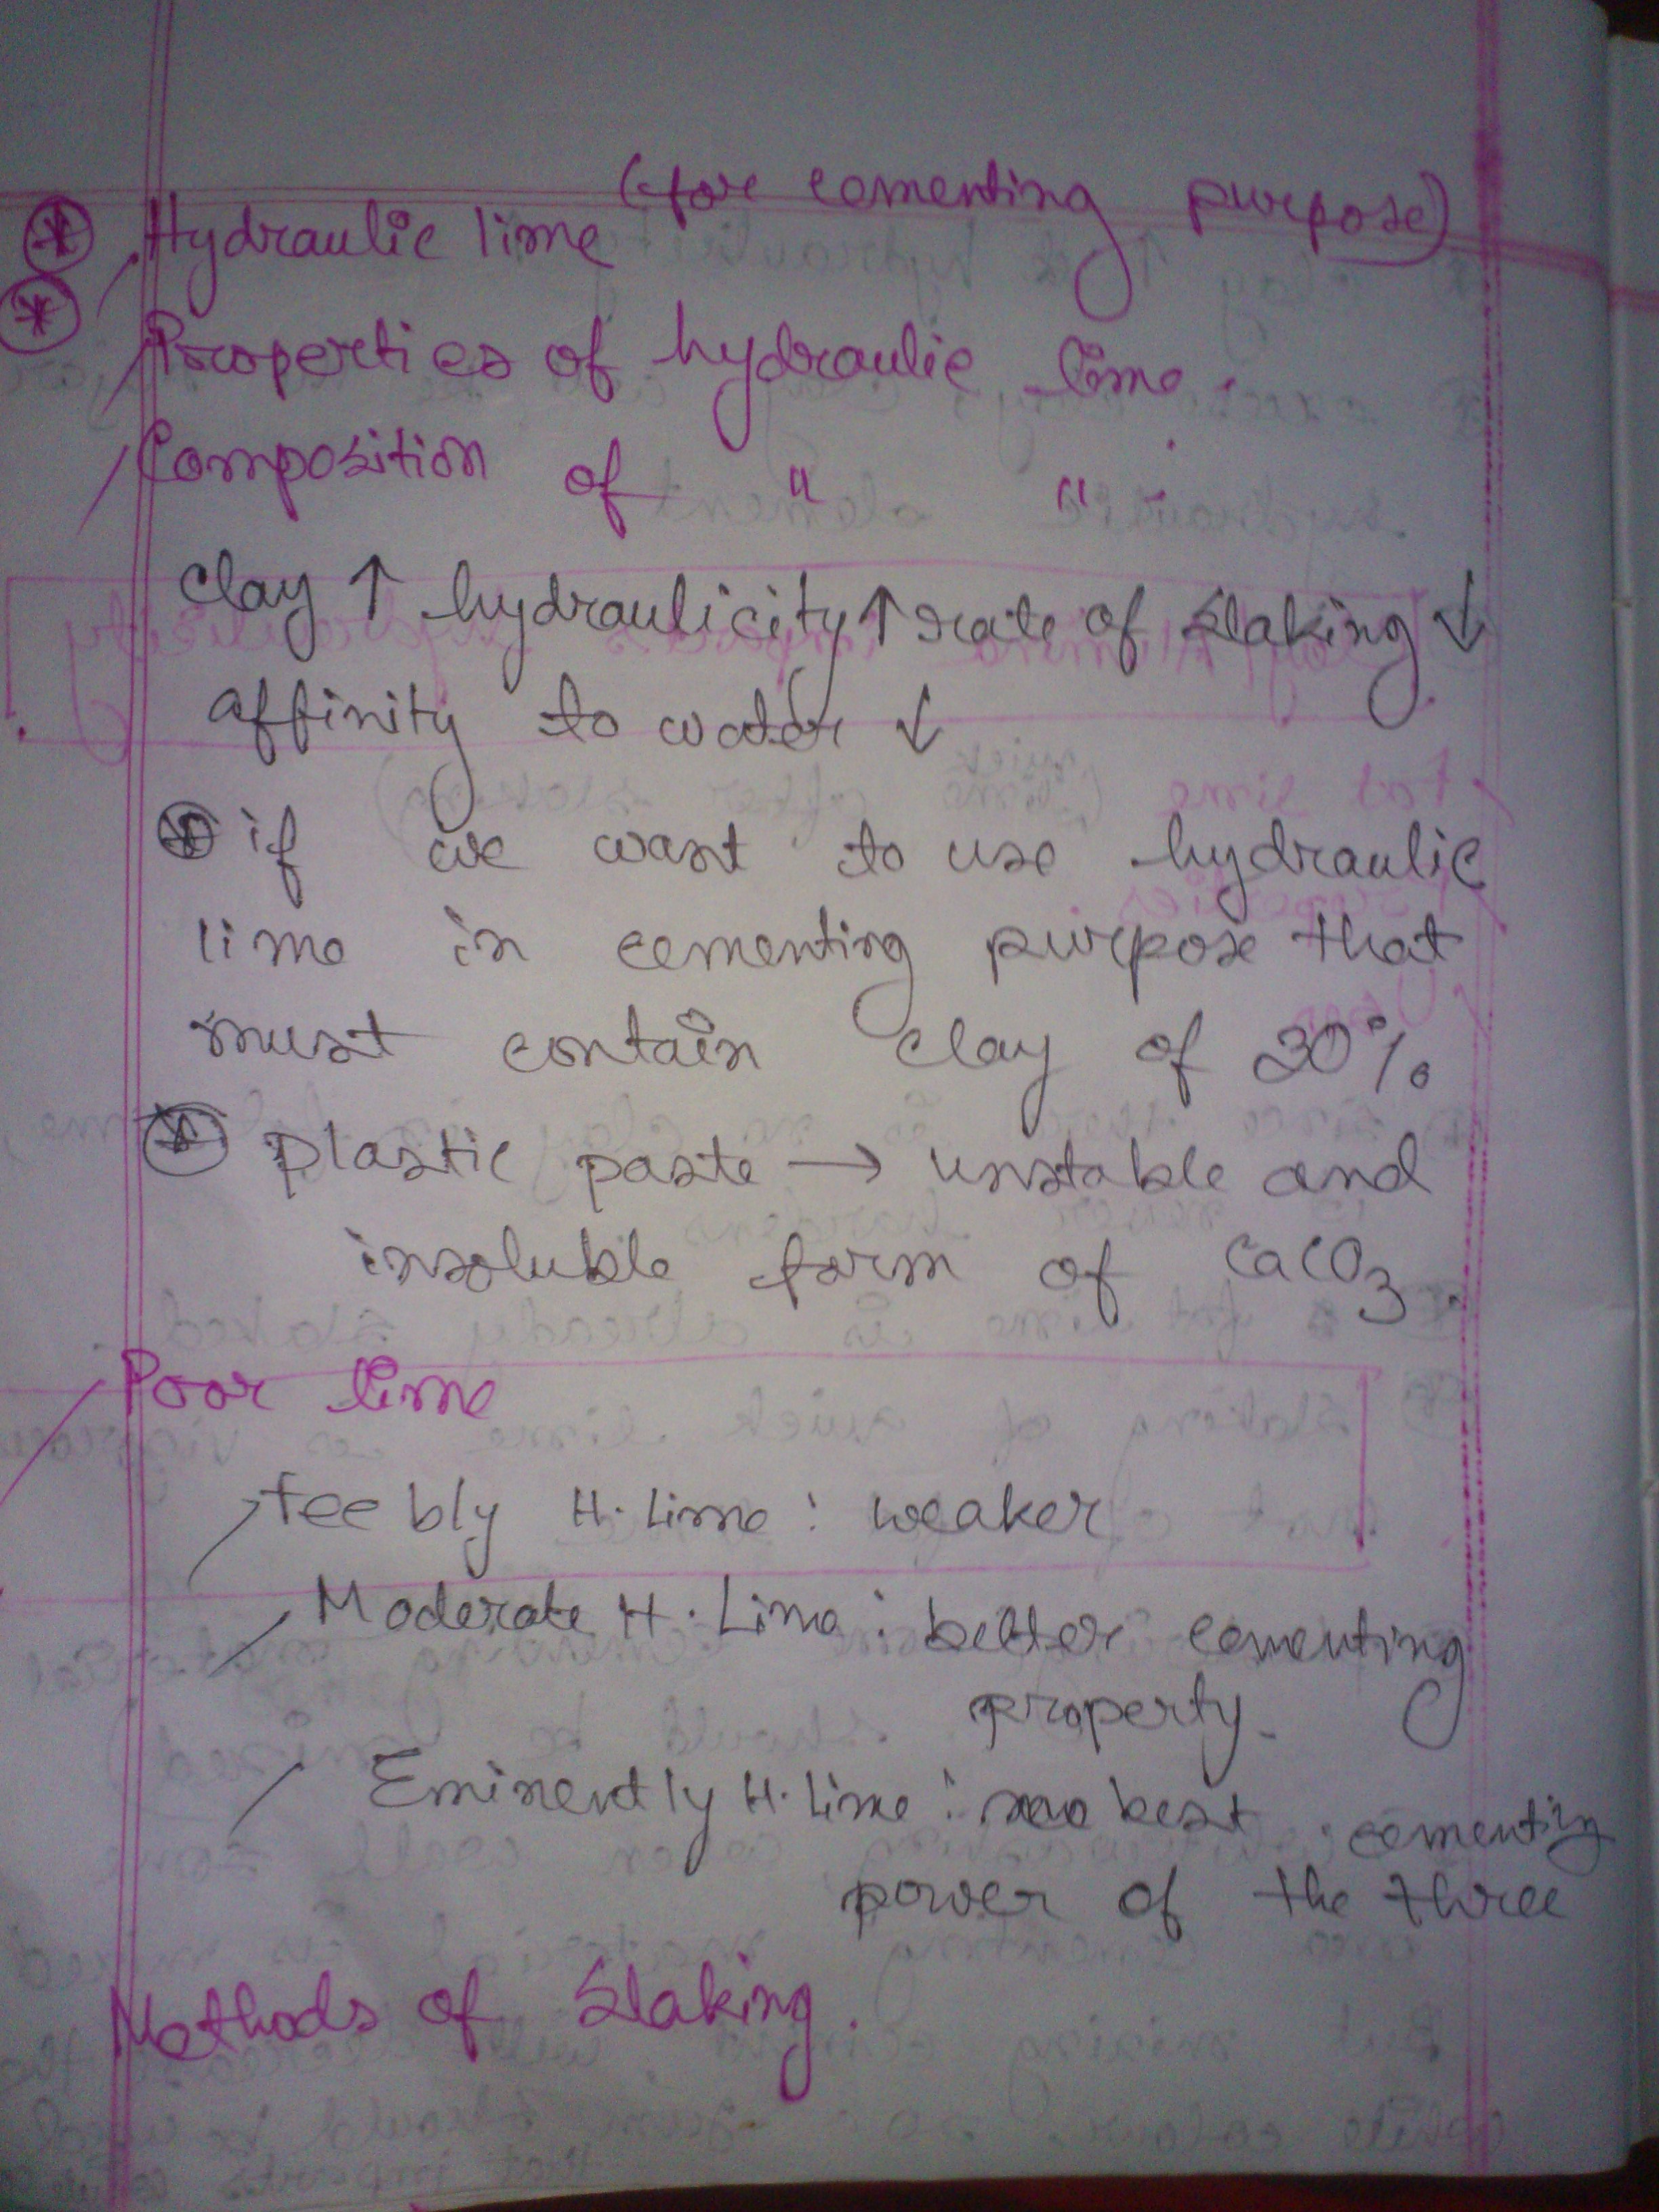 (for cementing purpose)
Hydraulic lime
Properties of hydraulic lime.
Composition of " " .
Clay ↑ hydraulicity ↑ rate of slaking ↓
affinity to water ↓
if we want to use hydraulic
lime in cementing purpose that
must contain clay of 30%
plastic paste → unstable and
insoluble form of CaCO3.
Poor lime
feebly H. Lime : weaker
Moderate H. Lime : better cementing
property.
Eminently H. Lime : best cementing
power of the three
Methods of Slaking.